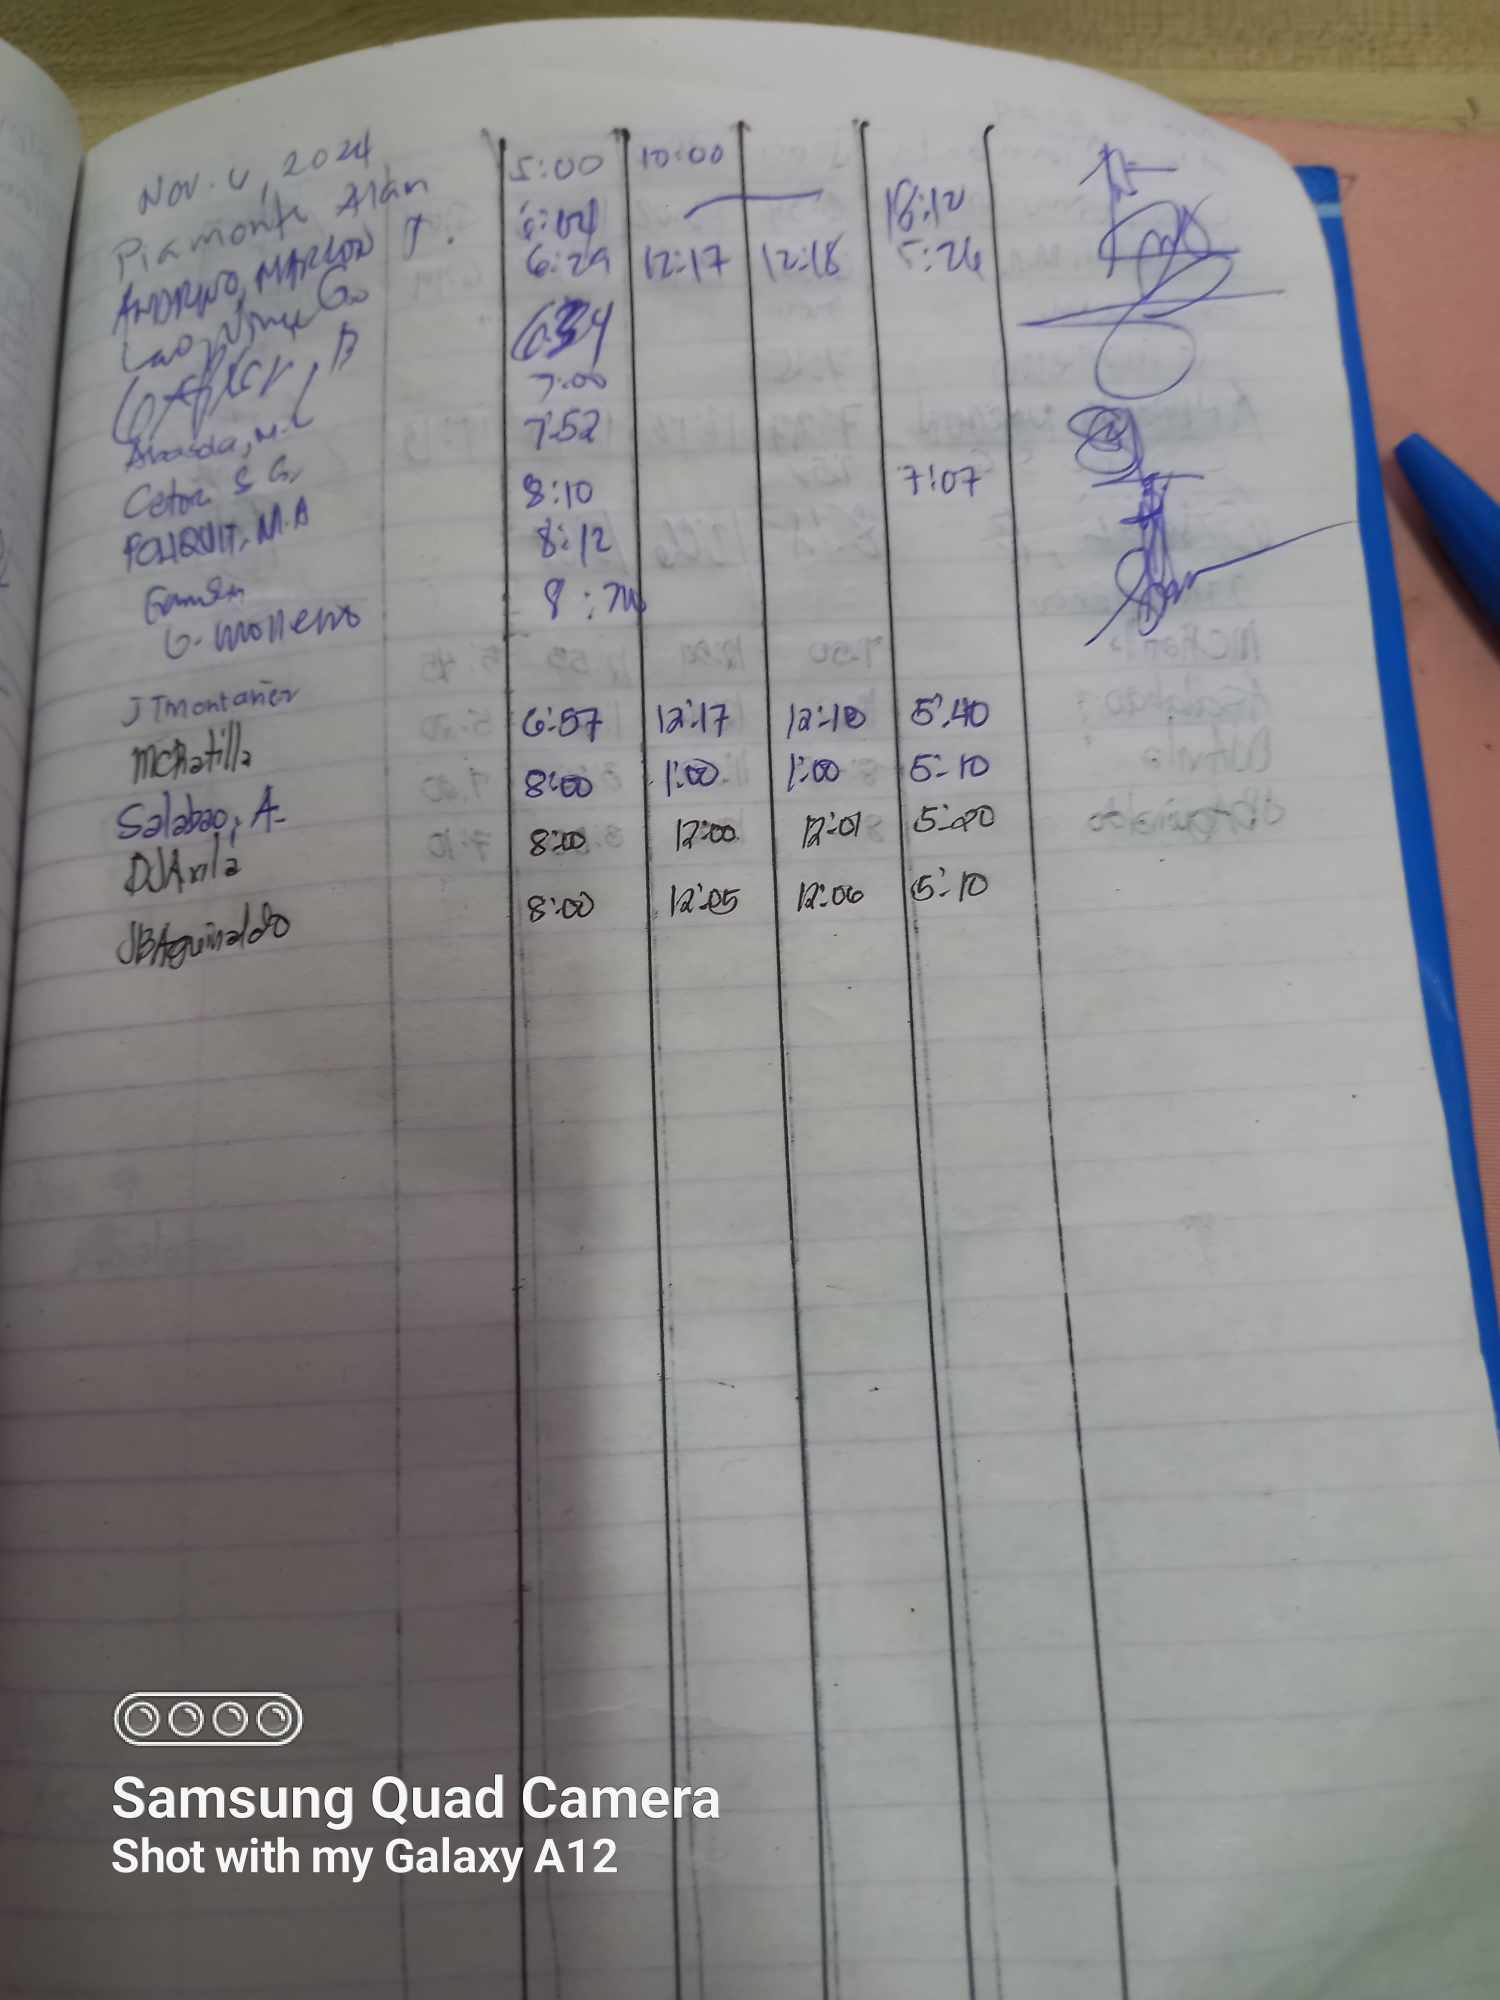 Nov. 4, 2024
Piamonte Alan 5:00 10:00
ANDRINO, MARLON J. 6:04 18:12
Lao, Vince Go 6:29 12:17 12:18 5:26
B 6:34
Abasda, M.L 7:00
Cetor S G. 7:52
POLIQUIT, M.A 8:10 7:07
8:12
G. Molleno 8:24
JTmontañer 6:57 12:17 12:18 5:40
MCRatilla 8:00 1:00 1:00 5:10
Salabao, A. 8:00 12:00 12:01 5:00
DJAvila 8:00 12:05 12:06 5:10
JBAguinaldo
Samsung Quad Camera
Shot with my Galaxy A12